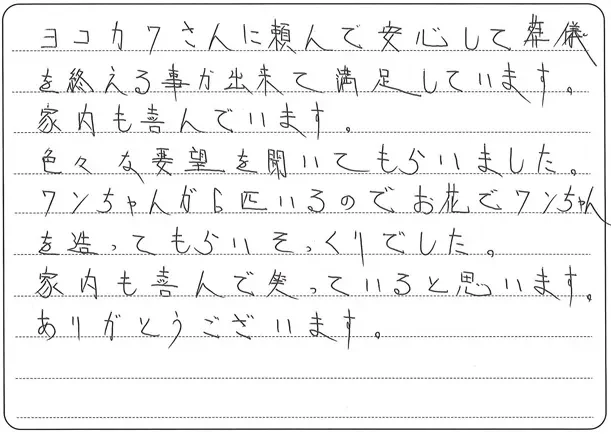 ヨコカワさんに頼んで安心して葬儀
を終える事が出来て満足しています。
家内も喜んでいます。
色々な要望を聞いてもらいました。
ワンちゃんが6匹いるのでお花でワンちゃん
を造ってもらいそっくりでした。
家内も喜んで笑っていると思います。
ありがとうございます。